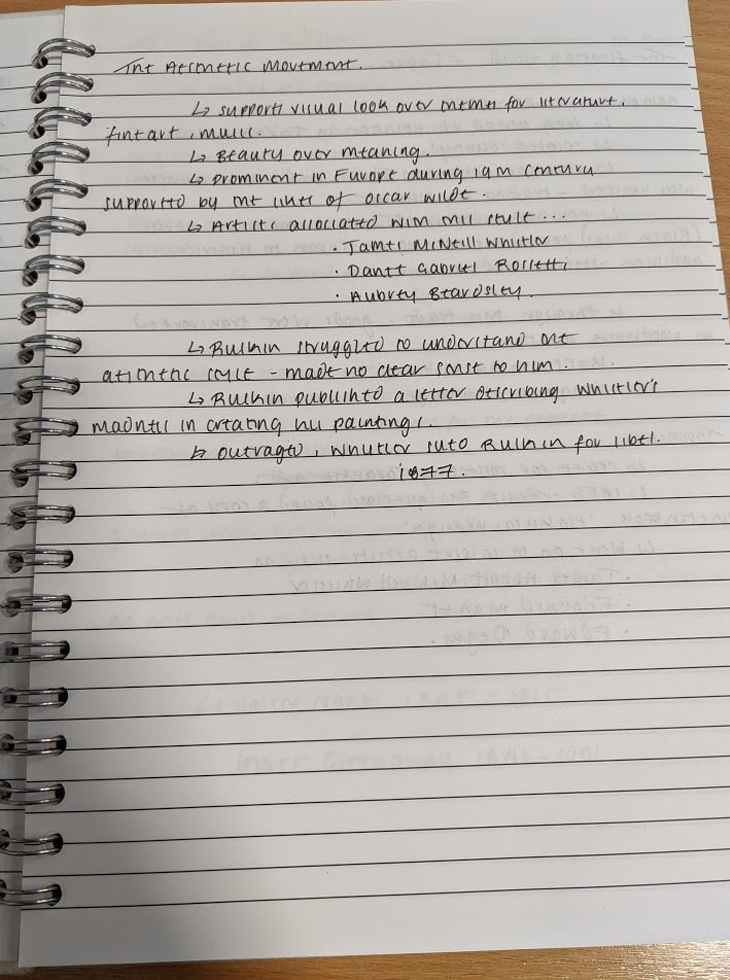 The Aesthetic Movement.
↳ supports visual look over themes for literature,
fine art, music.
↳ Beauty over meaning.
↳ prominent in Europe during 19th century
supported by the likes of oscar wilde.
↳ Artists associated with this style...
· James McNeill Whistler
· Dante Gabriel Rossetti
· Aubrey Beardsley.
↳ Ruskin struggled to understand the
aesthetic style - made no clear sense to him.
↳ Ruskin published a letter describing Whistler's
madness in creating his paintings.
↳ outraged, Whistler sued Ruskin for libel.
1877.